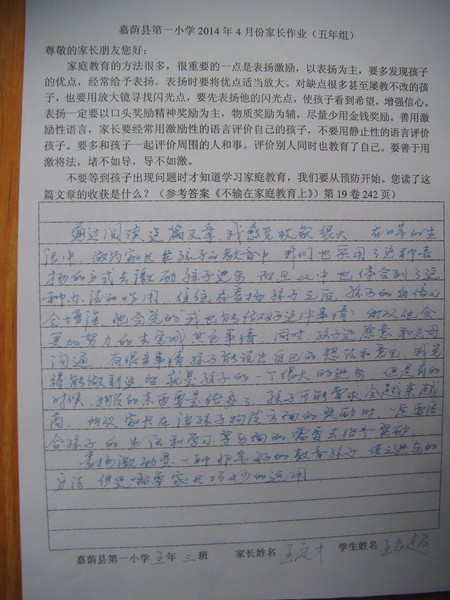 嘉荫县第一小学2014年4月份家长作业（五年组）
尊敬的家长朋友您好：
家庭教育的方法很多，很重要的一点是表扬激励，以表扬为主，要多发现孩子
的优点，经常给予表扬。表扬时要将优点适当放大。对缺点很多甚至屡教不改的孩
子，也要用放大镜寻找闪光点，要先表扬他的闪光点，使孩子看到希望，增强信心。
表扬一定要以口头奖励精神奖励为主，物质奖励为辅，尽量少用金钱奖励。善用激
励性语言，家长要经常用激励性的语言评价自己的孩子，不要用静止性的语言评价
孩子。要多和孩子一起评价周围的人和事。评价别人同时也教育了自己。要善于用
激将法，堵不如导，导不如激。
不要等到孩子出现问题时才知道学习家庭教育，我们要从预防开始。您读了这
篇文章的收获是什么？（参考答案《不输在家庭教育上》）第19卷242页）
通过阅读这篇文章，我感觉收获很大，在日常的生
活中，做为家长在孩子的教育中，我们也采用了这种表
扬的方式去激励孩子进步，而且从中也体会到了这
种方法的作用，使经表扬孩子之后，孩子的自信心
会增强，他会觉的我也能做好这件事情，所以他会
更加努力的去做其它事情，同时，孩子还愿意和父母
沟通，有很多事情孩子能说出自己的想法和意见，我觉
得能做到这些就是孩子的一个很大的进步，但是有的
时候，物质的东西要是给多了，孩子的要求会越来越
高，所以家长在给孩子物质方面的奖励时，一定要结
合孩子的生活和学习等方面的需要去给予奖励
表扬激励是一种非常好的教育孩子使之进步的
方法，但是需要家长巧妙的运用
嘉荫县第一小学 五年 三 班 家长姓名 学生姓名